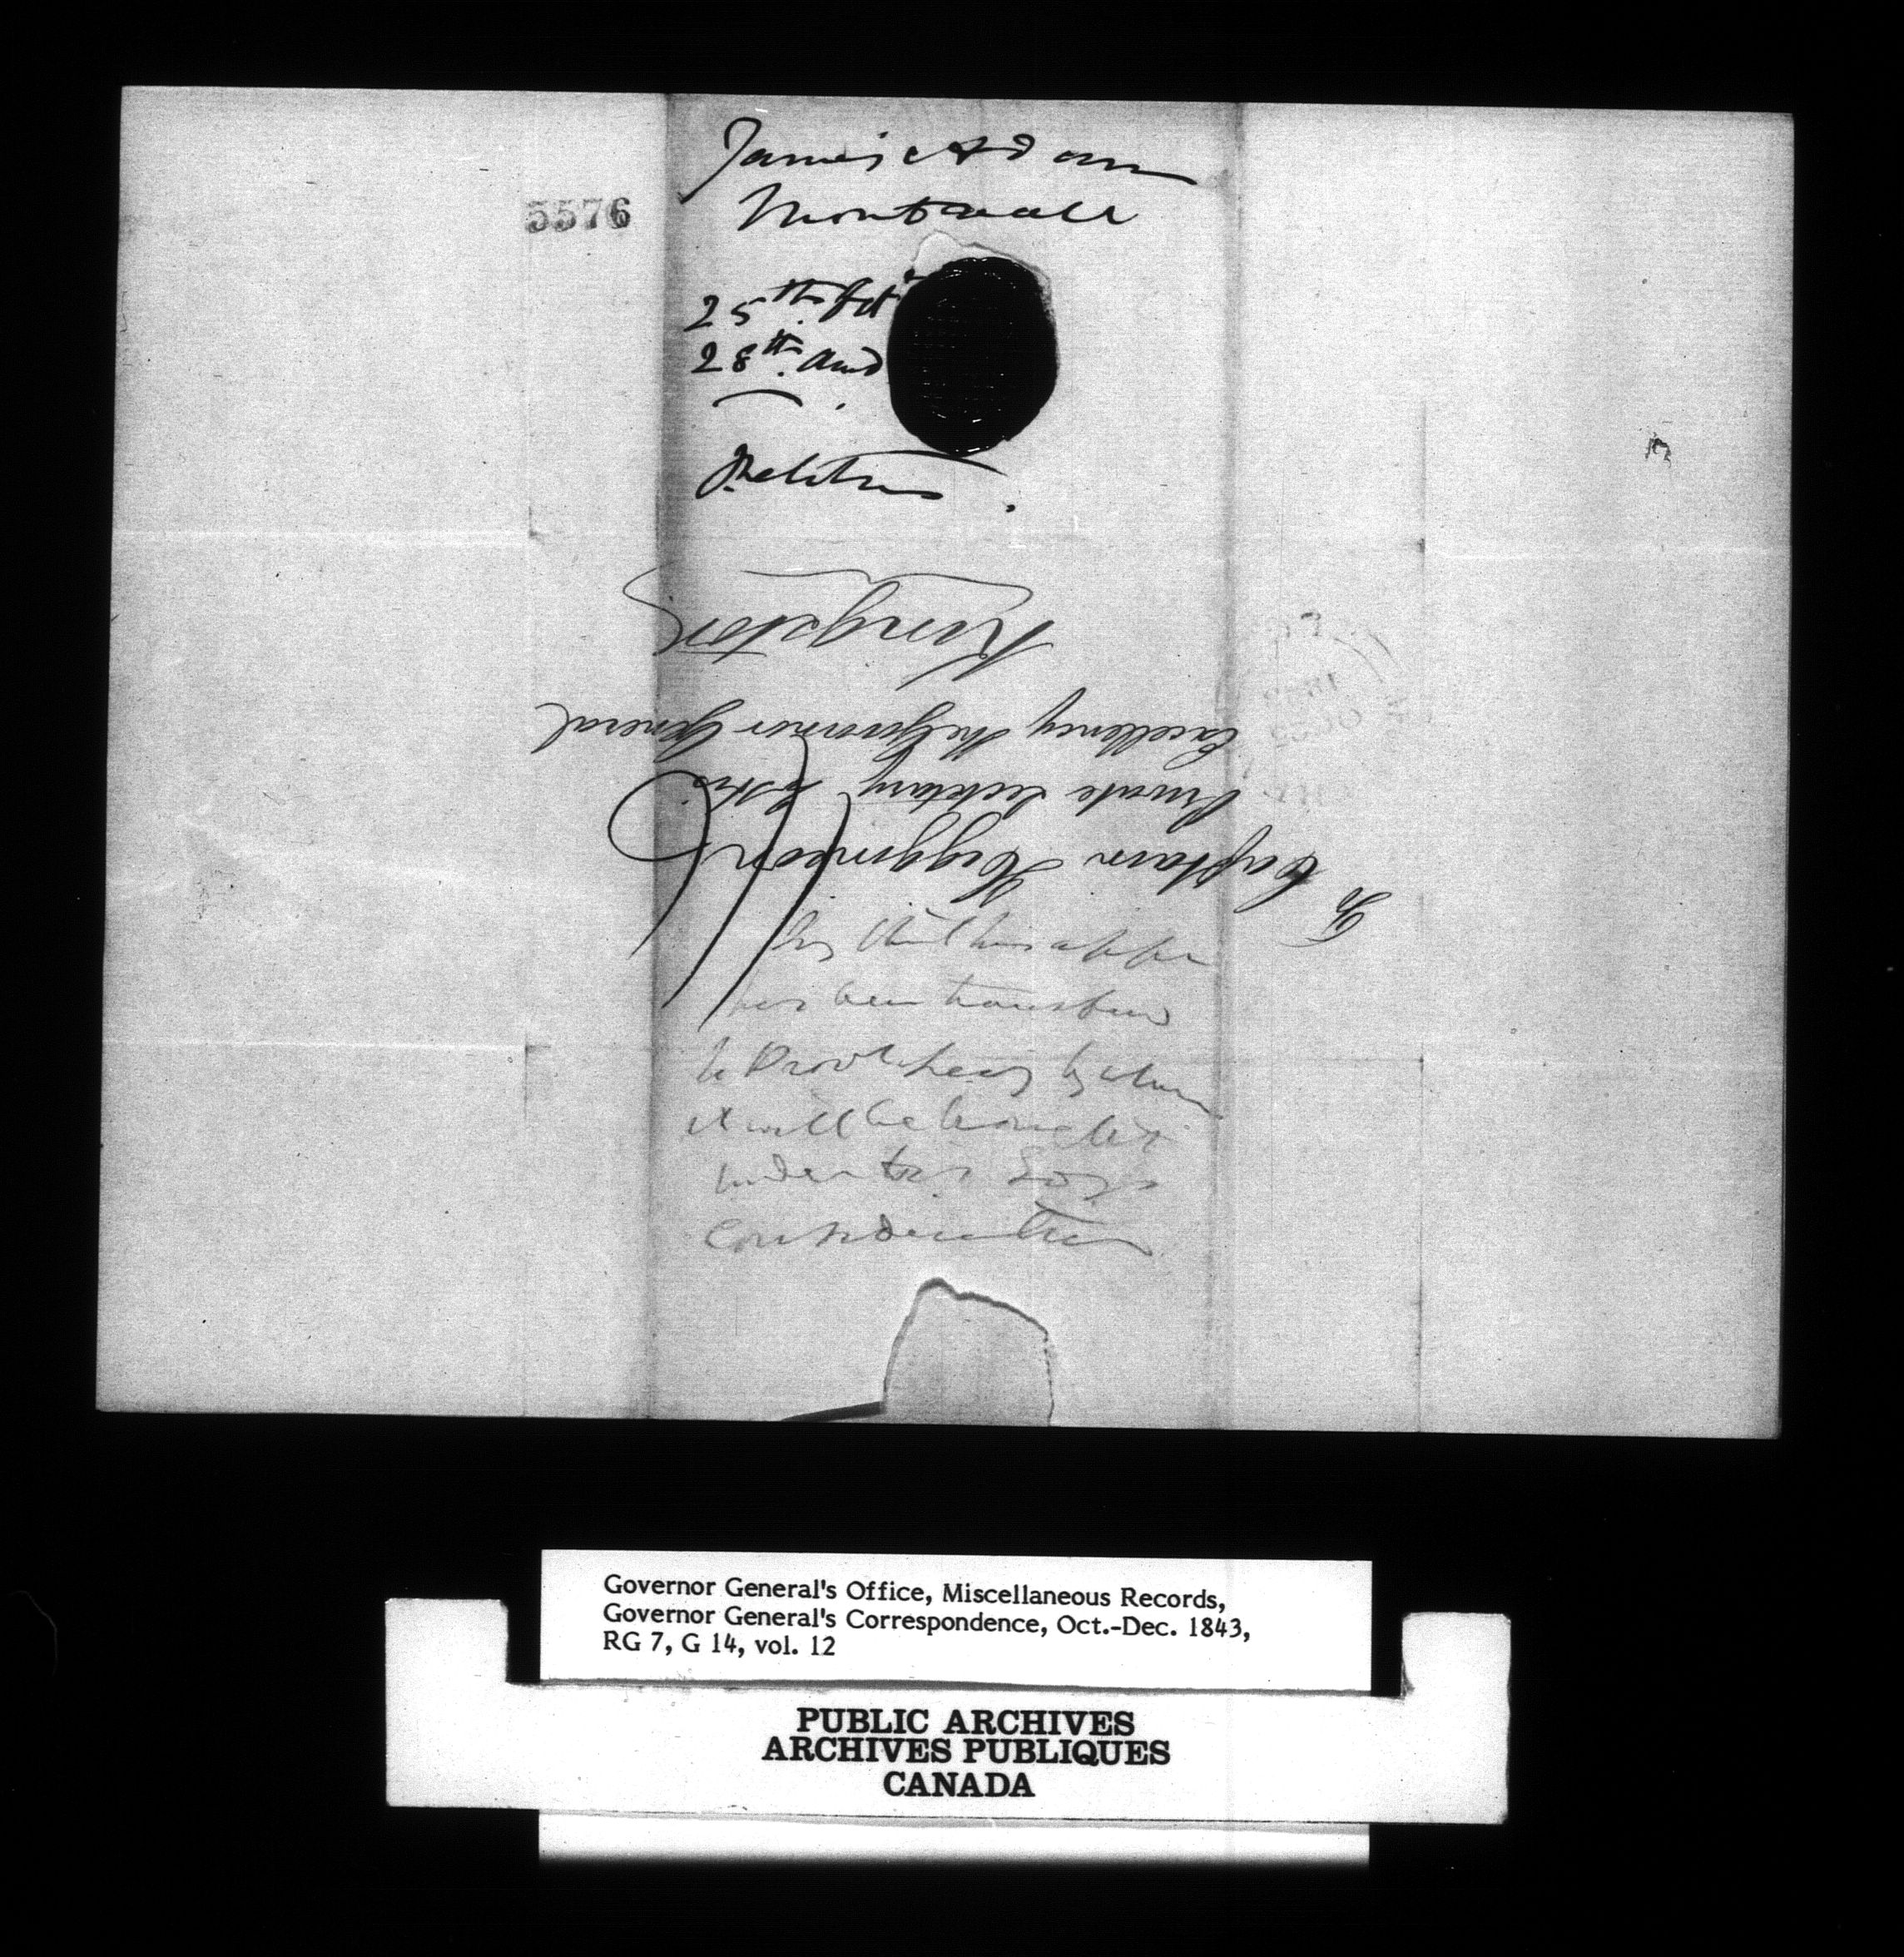 5576
James Adam
Montreall
25th Octr
28th And
Petition.
To
Captain Higginson
Private Secretary to His
Excellency the Governor General
Kingston
that his
has been transferred
to Provl Secy by whom
it will be brought
under
consideration
Governor General's Office, Miscellaneous Records,
Governor General's Correspondence, Oct.-Dec. 1843,
RG 7, G 14, vol. 12
PUBLIC ARCHIVES
ARCHIVES PUBLIQUES
CANADA